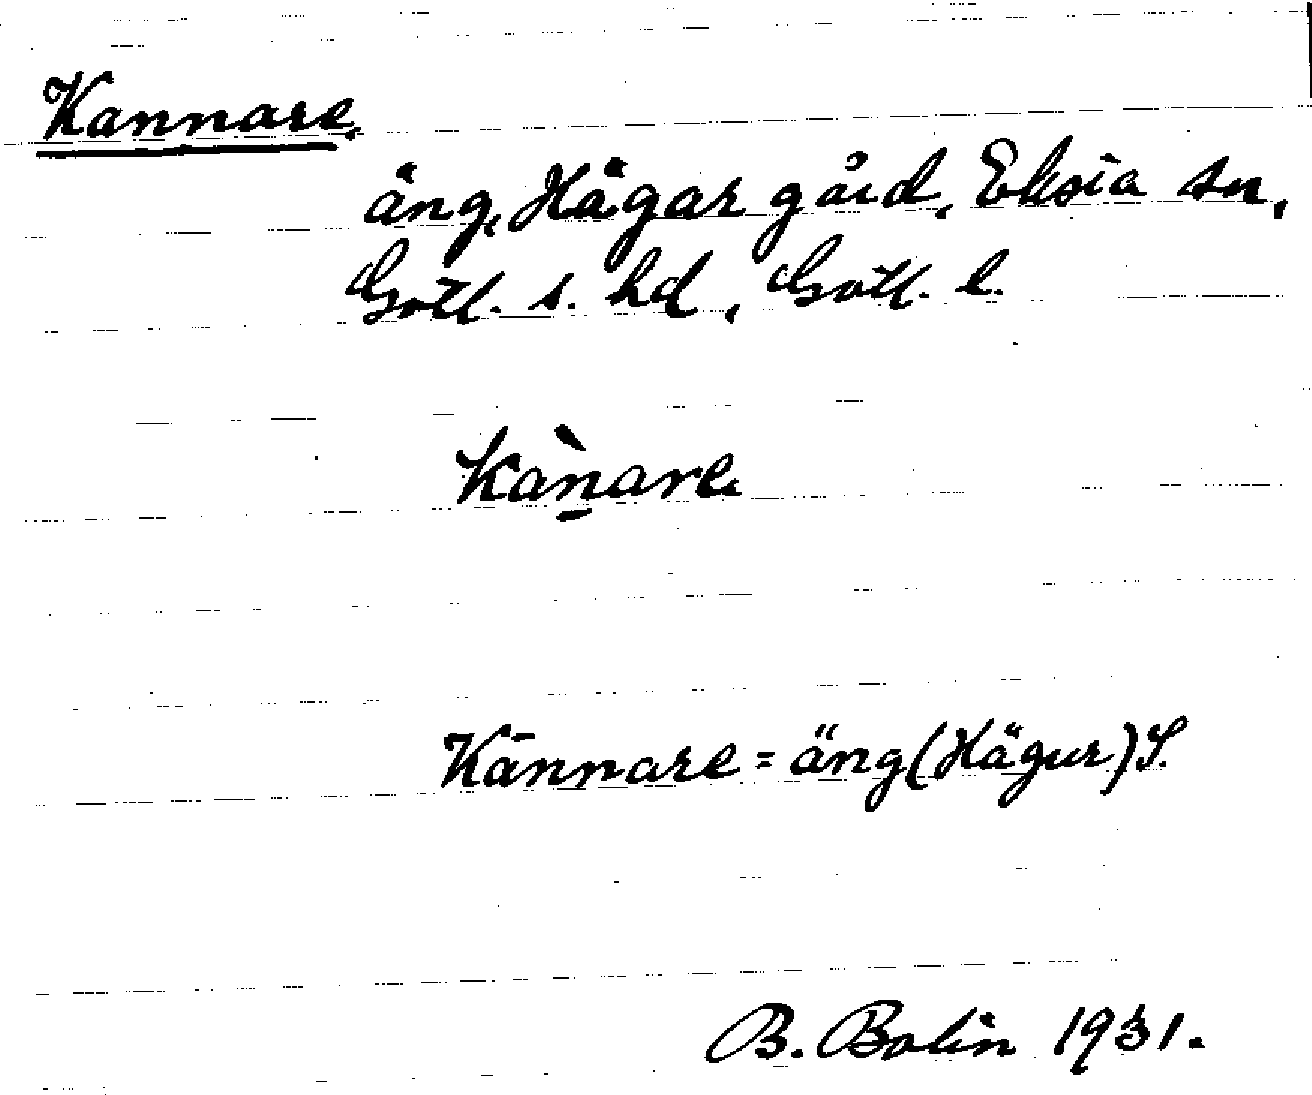 Kannare,
äng, Hägar gård, Eksta sn,
Gotl. s. hd, Gotl. l.
Kàṉare.
Kännare = äng (Hägur) S.
B. Bolin 1931.